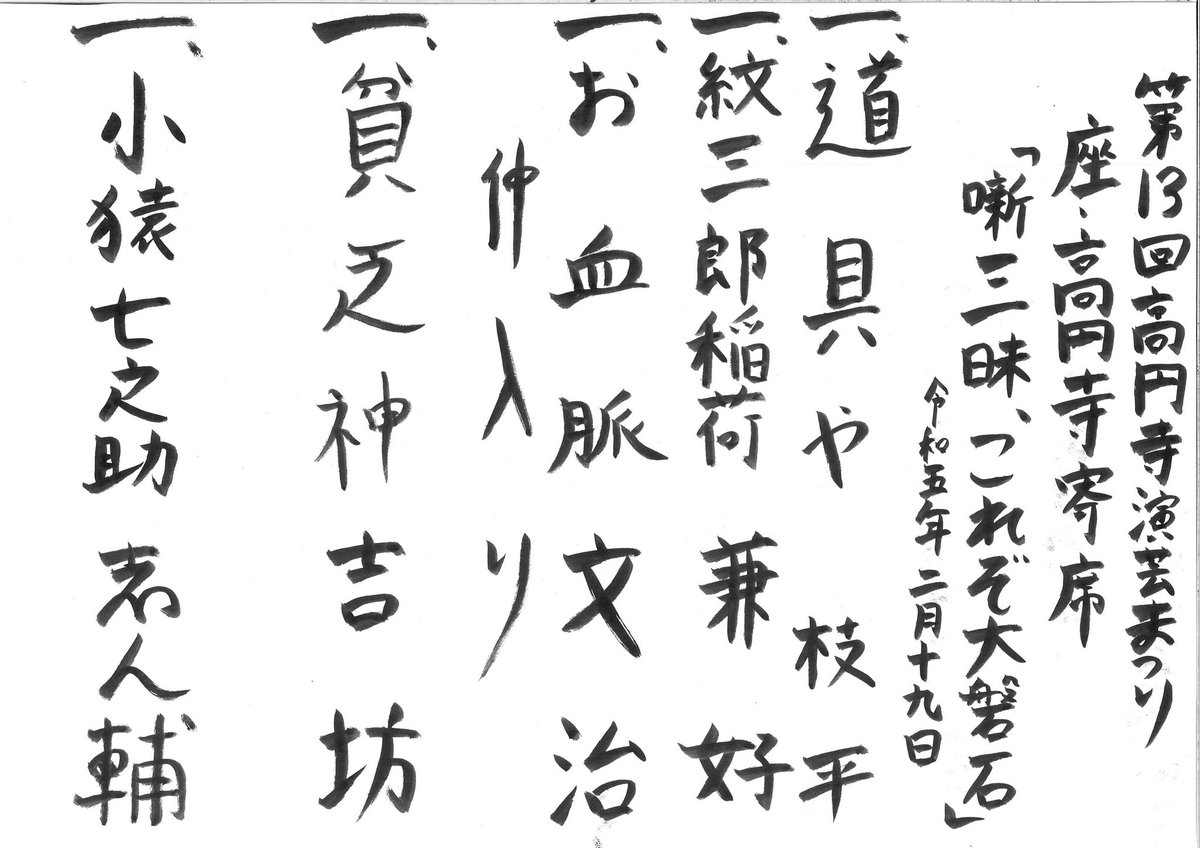 第13回高円寺演芸まつり
座・高円寺寄席
「噺三昧、これぞ大磐石」
令和五年二月十九日
一、道具や 枝平
一、紋三郎稲荷 兼好
一、お血脈 文治
仲入り
一、貧乏神 吉坊
一、小猿七之助 志ん輔